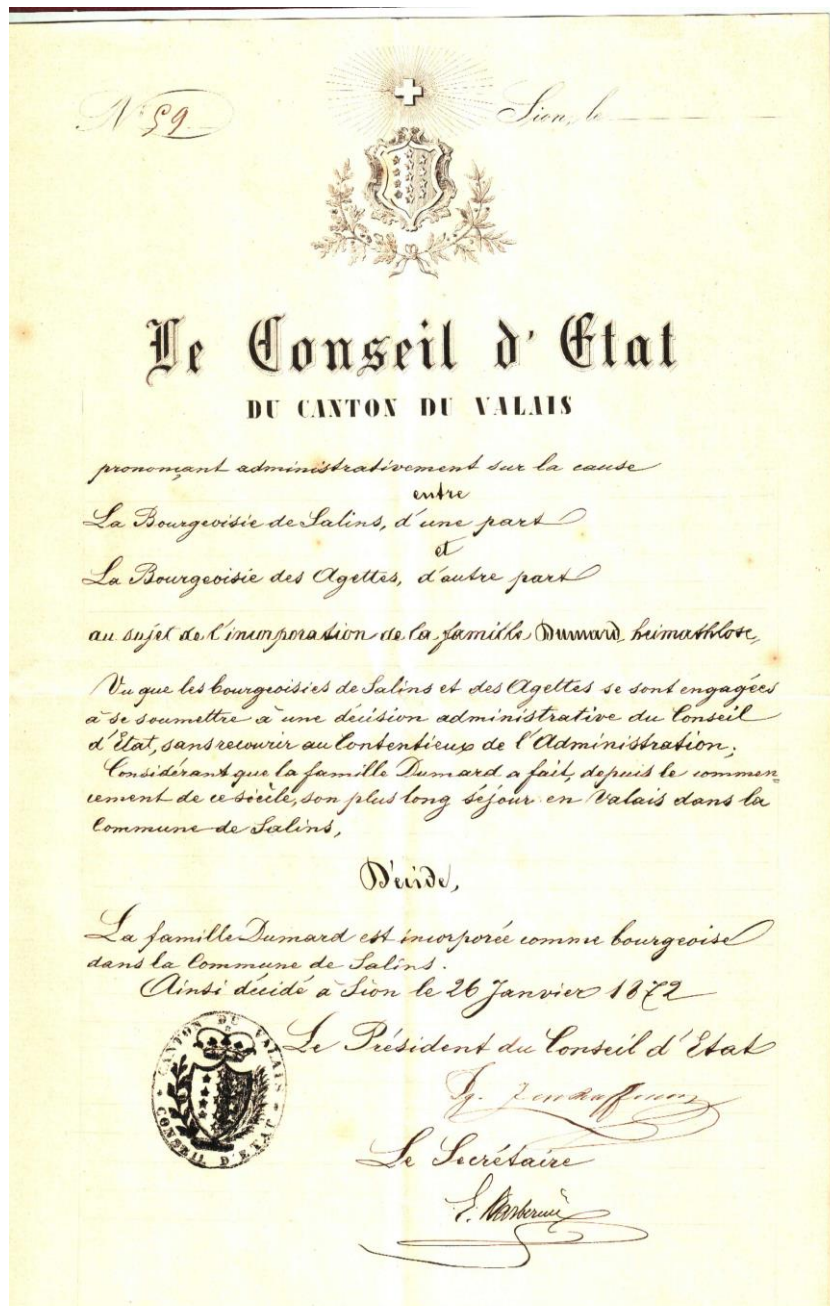 N° 59
Sion, le
Le Conseil d'Etat
DU CANTON DU VALAIS
prononçant administrativement sur la cause
entre
La Bourgeoisie de Salins, d'une part
et
La Bourgeoisie des Agettes, d'autre part
au sujet de l'incorporation de la famille Dumard, heimathlose,
Vu que les bourgeoisies de Salins et des Agettes se sont engagées
à se soumettre à une décision administrative du Conseil
d'Etat, sans recourir au Contentieux de l'Administration;
Considérant que la famille Dumard a fait, depuis le commen-
cement de ce siècle, son plus long séjour en Valais dans la
Commune de Salins,
Décide,
La famille Dumard est incorporée comme bourgeoise
dans la Commune de Salins.
Ainsi décidé à Sion le 26 Janvier 1872
Le Président du Conseil d'Etat
CANTON DU VALAIS
CONSEIL D'ETAT
Le Secrétaire
E. Barberini